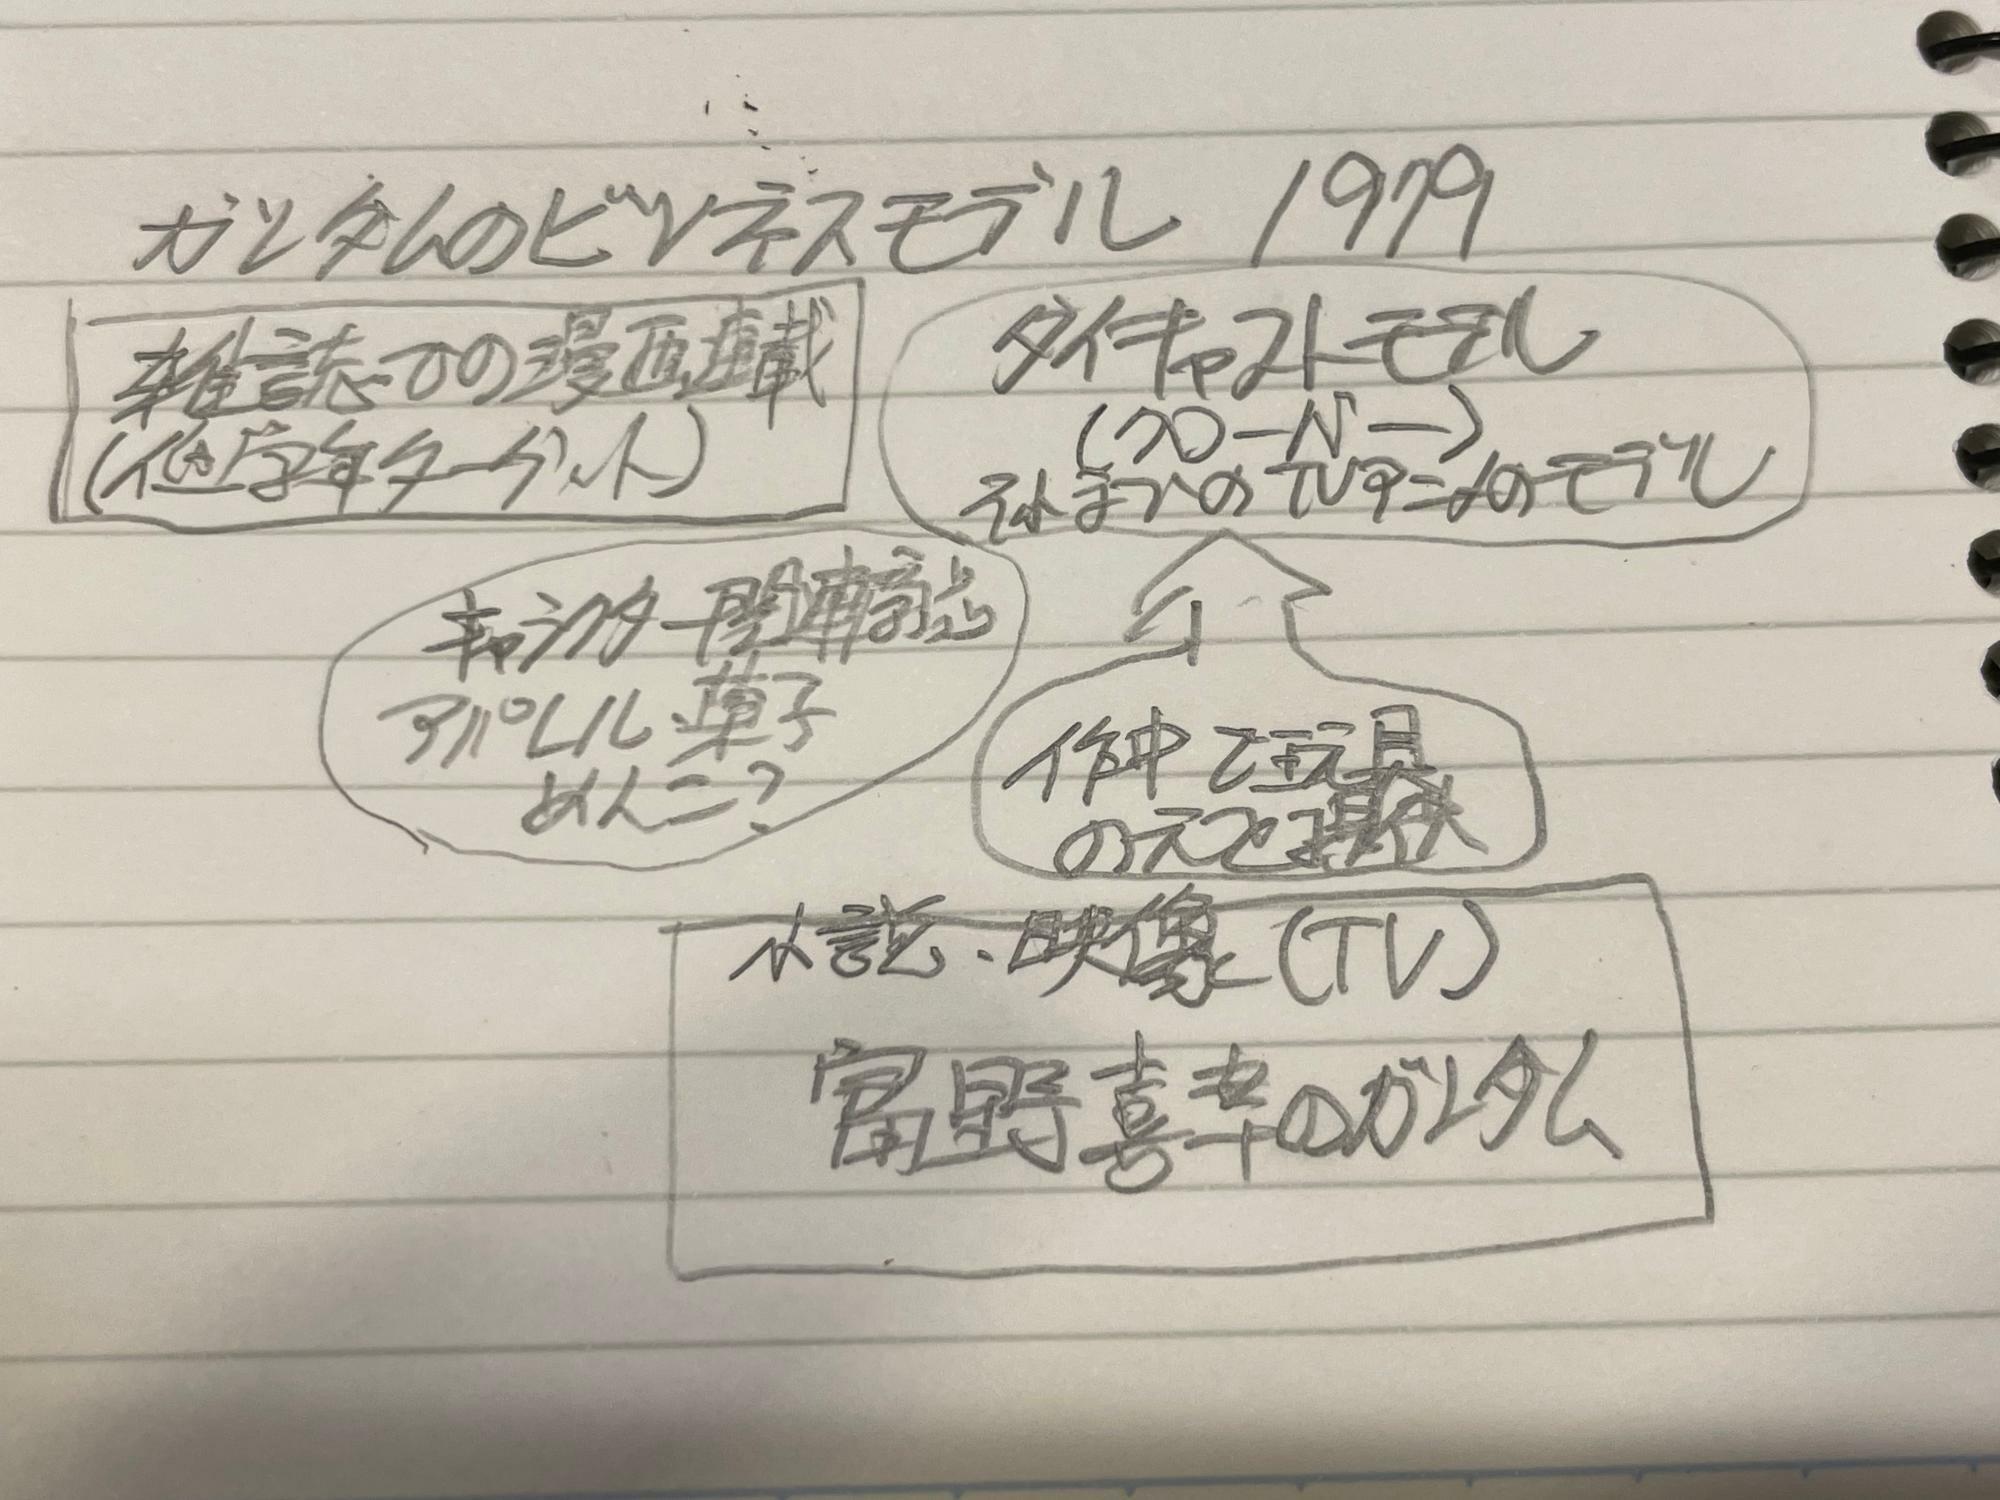 ガンダムのビジネスモデル 1979
雑誌での漫画連載
(低学年ターゲット)
ダイキャストモデル
(クローバー)
それまでのTVアニメのモデル
キャラクター関連商品
アパレル 菓子
めんこ?
作中で玩具
の元を提供
小説・映像(TV)
富野喜幸のガンダム